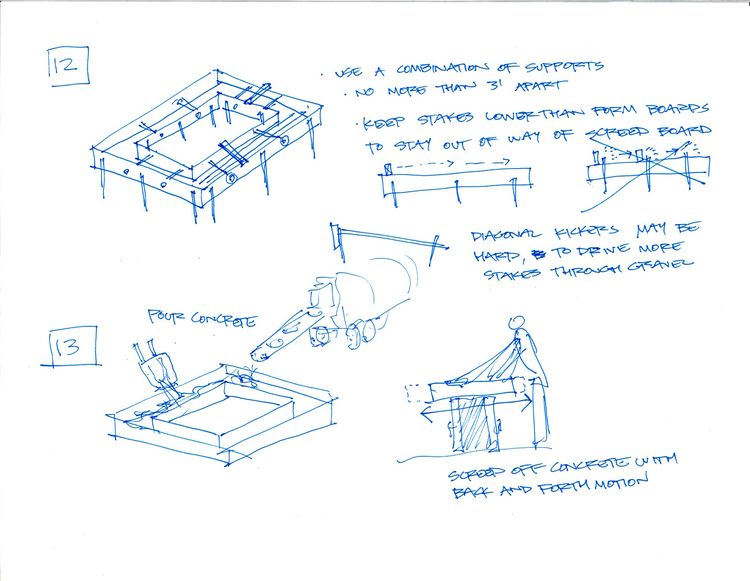 12
· USE A COMBINATION OF SUPPORTS
· NO MORE THAN 3' APART
· KEEP STAKES LOWER THAN FORM BOARDS
TO STAY OUT OF WAY OF SCREED BOARD
DIAGONAL KICKERS MAY BE
HARD, TO DRIVE MORE
STAKES THROUGH GRAVEL
13
POUR CONCRETE
SCREED OFF CONCRETE WITH
BACK AND FORTH MOTION